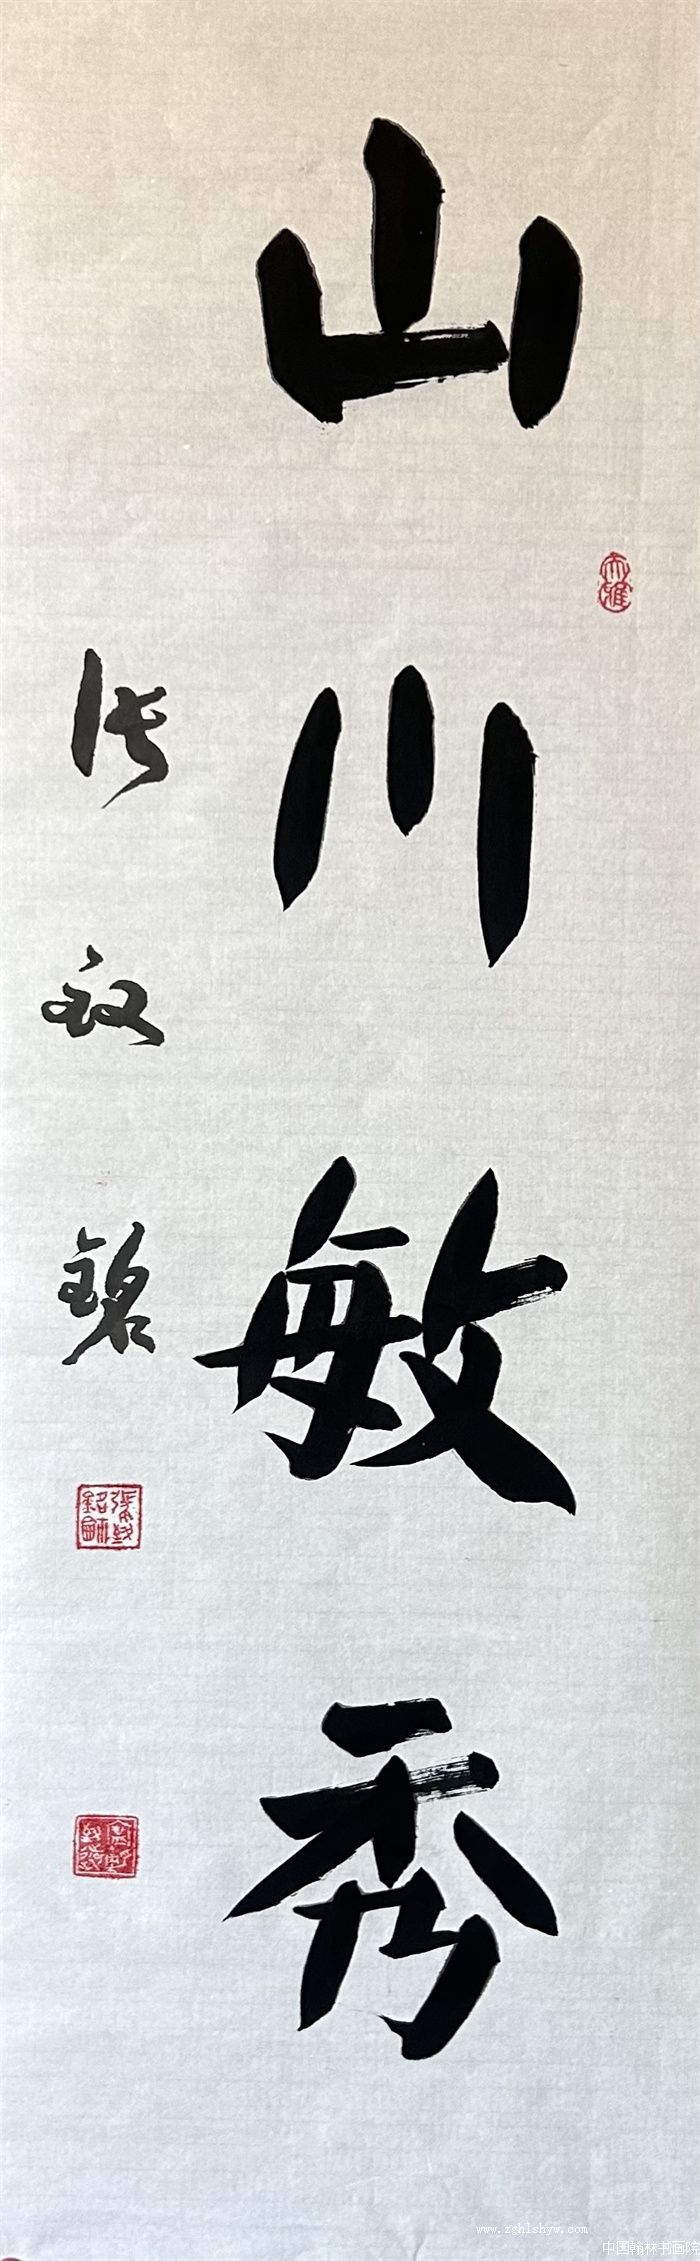 山川敏秀
张敬铭
www.zghlshyw.com
中国翰林书画院